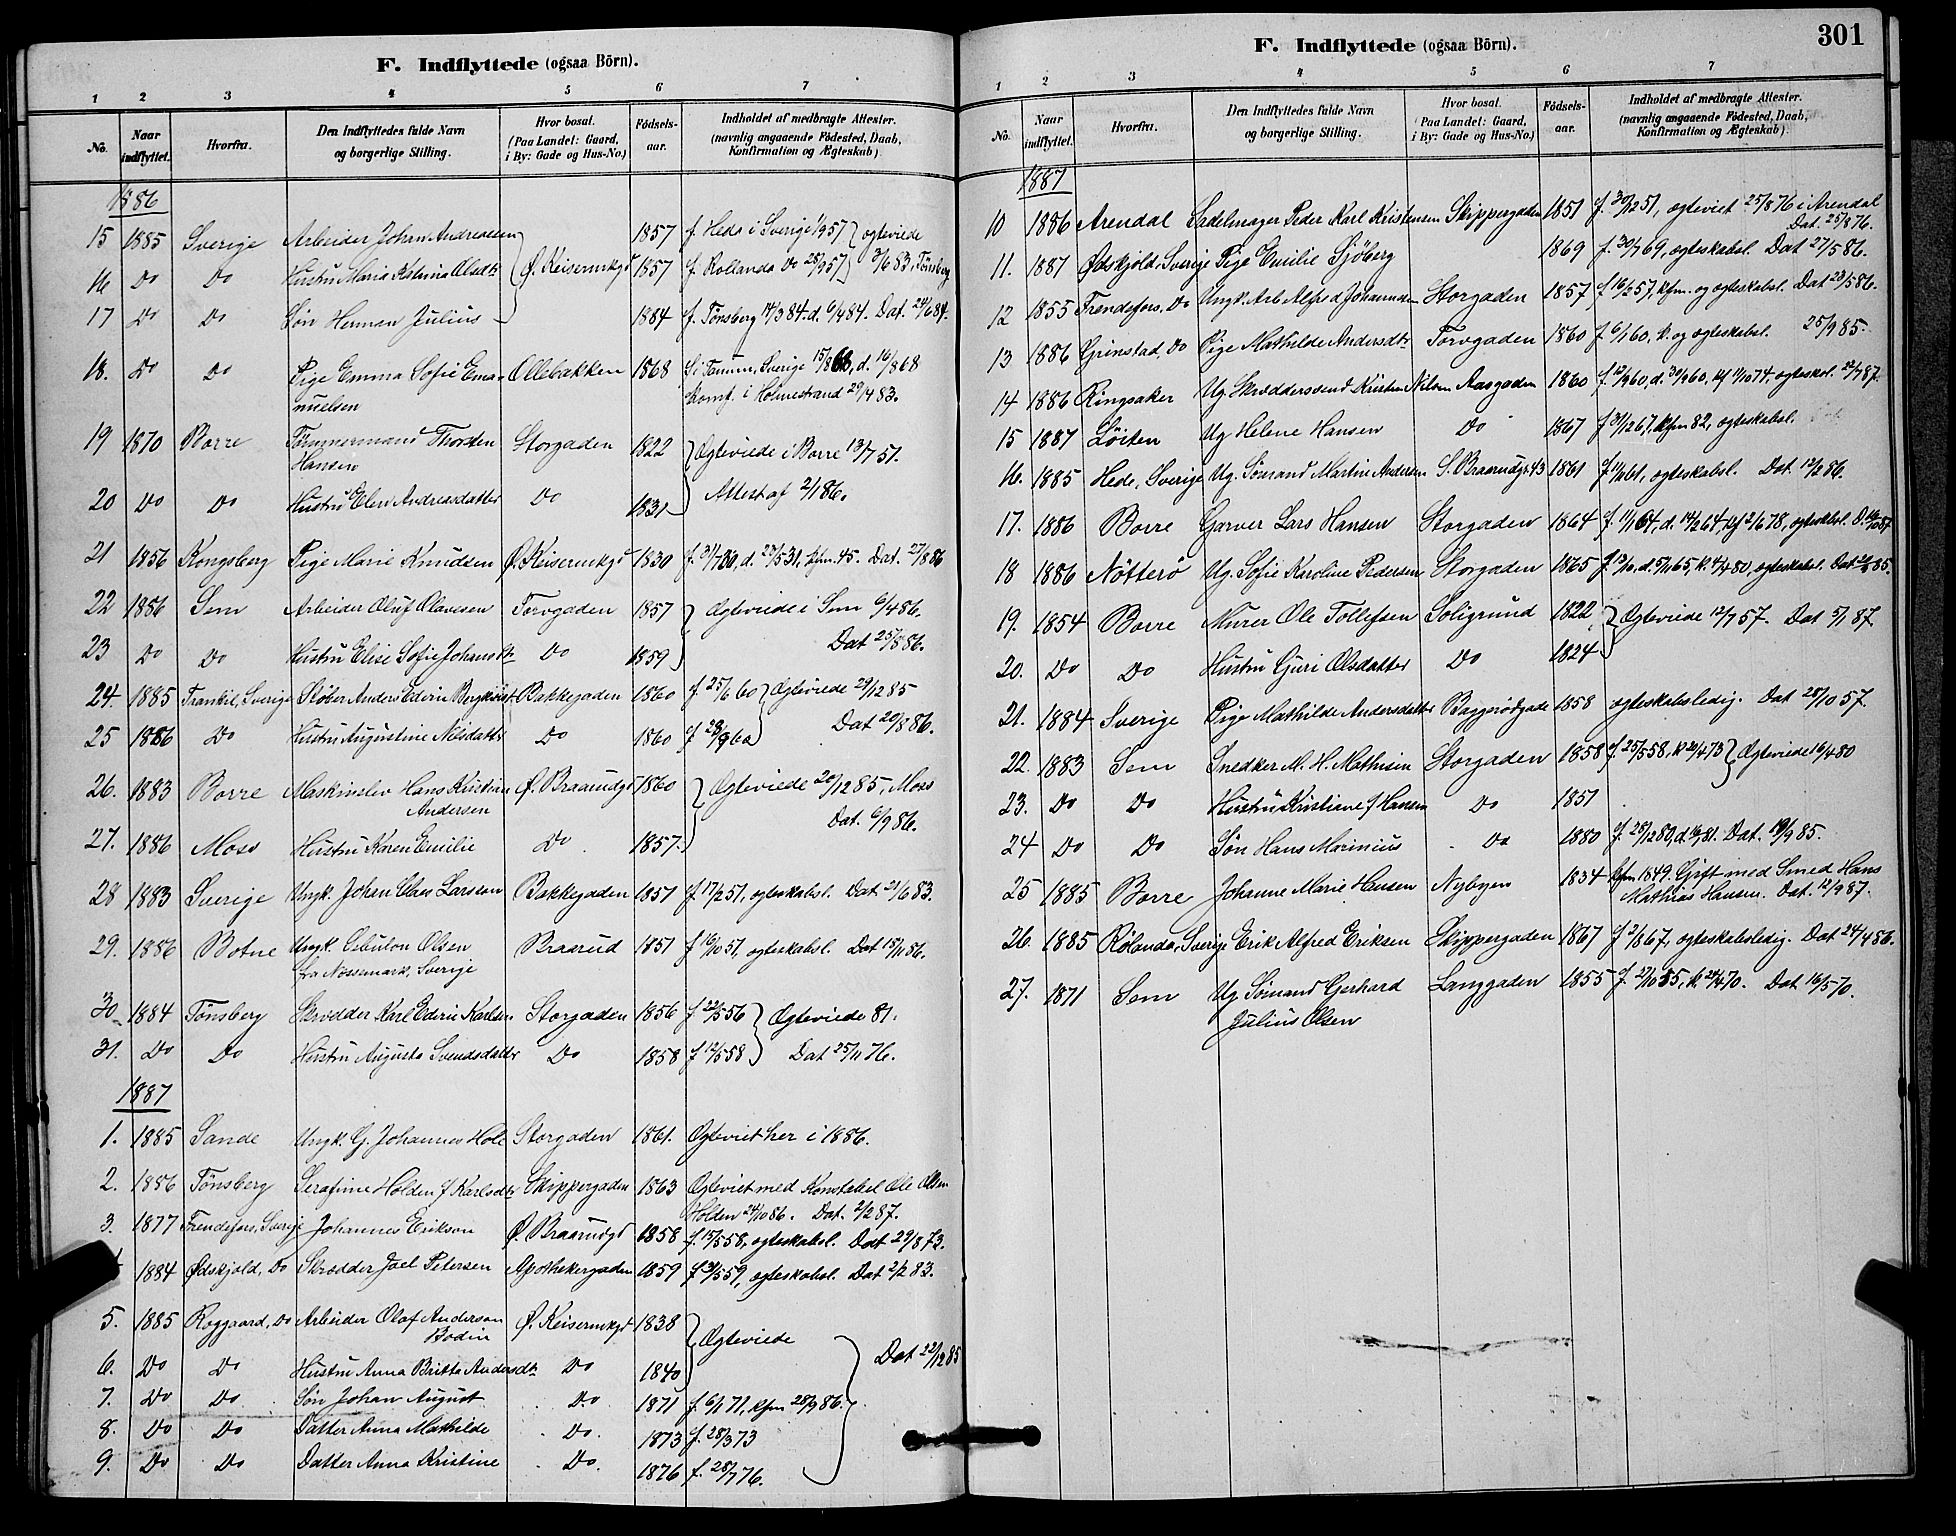 F. Indflyttede (ogsaa Börn).
1 2 3 4 5 6 7
No. Naar indflyttet. Hvorfra. Den Indflyttedes fulde Navn og borgerlige Stilling. Hvor bosat. (Paa Landet: Gaard, i By: Gade og Hus-No.) Fødsels-aar. Indholdet af medbragte Attester. (navnlig angaaende Födested, Daab, Konfirmation og Ægteskab).
1886
15 1885 Sverige Arbeider Johan Andreassen 1857 f. Hedo i Sverige 1/9 57 ogteviede
16 Do Do Hustru Maria Katarina Olsdtr Ø. Keisermkgd 1857 f. Rollanda Do 28/9 57 3/6 83 i Tönsberg
17 Do Do Søn Herman Julius 1884 f. Tönsberg 14/3 84. d. 6/4 84. Dat. 24/6 84.
18. Do Do Pige Emma Sofie Ema- Ollebakken 1868 f. i Tanum, Sverige 15/8 68, d. 16/8 68
nuelsen Komf. i Holmestrand 29/4 83.
19 1870 Borre Tömmermand Thorsten Storgaden 1822 Ogteviede i Borre 13/7 51.
Hansen
20 Do Do Hustru Elen Andreasdatter Do 1831 Attest af 2/1 86.
21 1856 Kongsberg Pige Marie Knudsen Ø. Keisermkgd 1830 f. 31/7 30, d. 23/5 31, kfm. 45. Dat. 27/1 886
22 1886 Sem Arbeider Oluf Olavesen Torvgaden 1857 Ogteviede i Sem 6/4 86.
23 Do Do Hustru Elise Sofie Johansdtr Do 1859 Dat 25/8 86.
24. 1885 Trankil, Sverige Støber Anders Edvin Bergkvist Bakkegaden 1860 f. 25/6 60 Ogteviede 29/12 85
25 1886 Do Hustru Augustine Nilsdatter Do 1860 f 28/9 60 Dat 20/8 86.
26. 1883 Borre Maskinelev Hans Kristian Ø. Braarudgd 1860 Ogteviede 20/12 85, Moss
Andersen Dat. 6/9 86.
27. 1886 Moss Hustru Karen Emilie Do 1857.
28 1883 Sverige Ungk. Johan Claes Larsson Bakkegaden 1851 f. 17/2 51, ogteskabsl. Dat 21/6 83.
29. 1886 Botne Ungk. Cebulon Olsen Braarud 1851 f 16/10 51, ogteskabsl. Dat 15/11 86.
fra Nössemark, Sverige
30. 1884 Tönsberg Skrædder Karl Edvin Karlsen Storgaden 1856 f 22/5 56 Ogteviede 81.
31. Do Do Hustru Augusta Svendsdatter Do 1858 f 12/5 58 Dat 25/11 76.
1887
1. 1885 Sande Ungk. G. Johannes Hole Storgaden 1861. Ogteviet her i 1886.
2. 1886 Tönsberg Serafine Holden f Karlsdtr Skippergaden 1863 Ogteviet med Konstabel Ole Olsen
Holden 24/10 86. Dat. 2/2 87.
3. 1877 Frendefors, Sverige Johannes Erikson Ø. Braarudgd 1858 f. 15/5 58, ogteskabsl. Dat 29/8 73.
1884 Ødskjold, Do Skrædder Joel Petersen Apothekergaden 1859 f 31/5 59, ogteskabsl. Dat 2/2 83.
5. 1885 Roggaard, Do Arbeider Olaf Anderson Ø. Keisermkgd 1838 Ogteviede
Bodin Dat 22/12 85
6. Do Do Hustru Anna Britta Andersdtr Do 1840
7. Do Do Søn Johan August Do 1871 f. 6/1 71, kfm 28/9 86.
8. Do Do Datter Anna Mathilde Do. 1873 f. 28/3 73
9. Do Do Datter Anna Kristine Do. 1876 f. 28/7 76.
301
F. Indflyttede (ogsaa Börn).
1 2 3 4 5 6 7
No. Naar indflyttet. Hvorfra. Den Indflyttedes fulde Navn og borgerlige Stilling. Hvor bosat. (Paa Landet: Gaard, i By: Gade og Hus-No.) Födsels-aar. Indholdet af medbragte Attester. (navnlig angaaende Födested, Daab, Konfirmation og Ægteskab).
1887
10 1886 Arendal Sadelmager Peder Karl Kristensen Skippergaden 1851 f. 30/12 51, ogteviet 25/8 76 i Arendal
Dat. 25/8 76.
11. 1887 Ødskjold, Sverige Pige Emilie Sjöberg 1869 f. 30/7 69, ogteskabsl. Dat 27/5 86.
12 1855 Frendefors, Do Ungk. Arb Alfred Johannesen Storgaden 1857 f 16/2 57, kfm. og ogteskabsl. Dat 23/5 86.
13 1886 Grinstad, Do Pige Mathilde Andersdtr Torvgaden 1860 f 6/1 60, k. og ogteskabsl. 25/9 85.
14 1886 Ringsaker Ug. Skræddersvend Kristen Nilsen Aasgaden 1860 f. 12/9 60, d. 30/9 60, kf 11/10 74, ogteskbl. 22/7 87.
15 1887 Löiten Ug Helene Hansen Do 1867 f 31/12 67, kfm 82, ogteskabsl.
16. 1885 Hede, Sverige Ug. Sömand Martin Andersen S. Braarudgt 43 1861 f 11/1 61, ogteskabsl. Dat. 12/2 86.
17. 1886 Borre Garver Lars Hansen Storgaden 1864 f. 11/1 64, d. 14/2 64, kf 2/6 78, ogteskabsl. D. 18/10 87.
18 1886 Nötterö Ug. Sofie Karoline Pedersen Storgaden 1865 f. 12/10, d. 5/11 65, k. 4/4 80, ogteskabsl. Dat 85.
19. 1854 Borre Murer Ole Tollefsen Soligrund 1822 Ogteviede 12/7 57. Dat 5/1 87.
20. Do Do Hustru Guri Olsdatter Do 1824
21. 1884 Sverige Pige Mathilde Andersdatter Baggerödgade 1858 ogteskabsledig. Dat 28/10 57.
22. 1883 Sem Snedker M. H. Mathisen Storgaden 1858 f. 25/5 58, k 20/4 73 Ogteviede 16/4 80
23. Do Do Hustru Kristiane f Hansen Do 1851
24 Do Do Søn Hans Marinius Do 1880 f. 28/12 80, d. 81. Dat. 19/9 85.
25 1885 Borre Johanne Marie Hansen Nybyen 1834 kfm 1849. Gift med Smed Hans
Mathias Hansen. Dat. 12/9 87.
26. 1885 Rölanda, Sverige Erik Alfred Eriksen Skippergaden 1867 f 2/8 67, ogteskabsledig. Dat 24/4 86.
27. 1871 Sem Ug Sömand Gerhard Langgaden 1855 f. 27/10 55, k. 24/4 70. Dat 16/5 70.
Julius Olsen